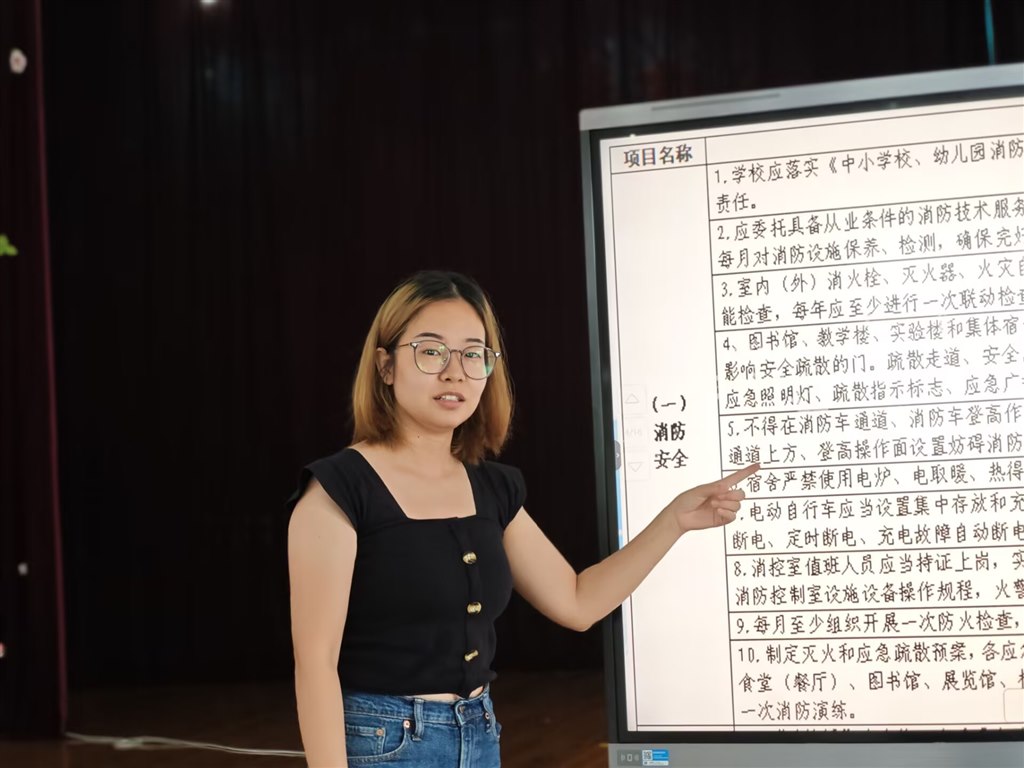 项目名称
1.学校应落实《中小学校、幼儿园消防
责任。
2.应委托具备从业条件的消防技术服务
每月对消防设施保养、检测，确保完好
3.室内（外）消火栓、灭火器、火灾自
能检查，每年应至少进行一次联动检查
4、图书馆、教学楼、实验楼和集体宿
影响安全疏散的门。疏散走道、安全
应急照明灯、疏散指示标志、应急广
（一）
消防
安全
5.不得在消防车通道、消防车登高作
通道上方、登高操作面设置妨碍消防
宿舍严禁使用电炉、电取暖、热得
.电动自行车应当设置集中存放和充
断电、定时断电、充电故障自动断电
8.消控室值班人员应当持证上岗，实
消防控制室设施设备操作规程，火警
9.每月至少组织开展一次防火检查，
10.制定灭火和应急疏散预案，各应
食堂（餐厅）、图书馆、展览馆、
一次消防演练。